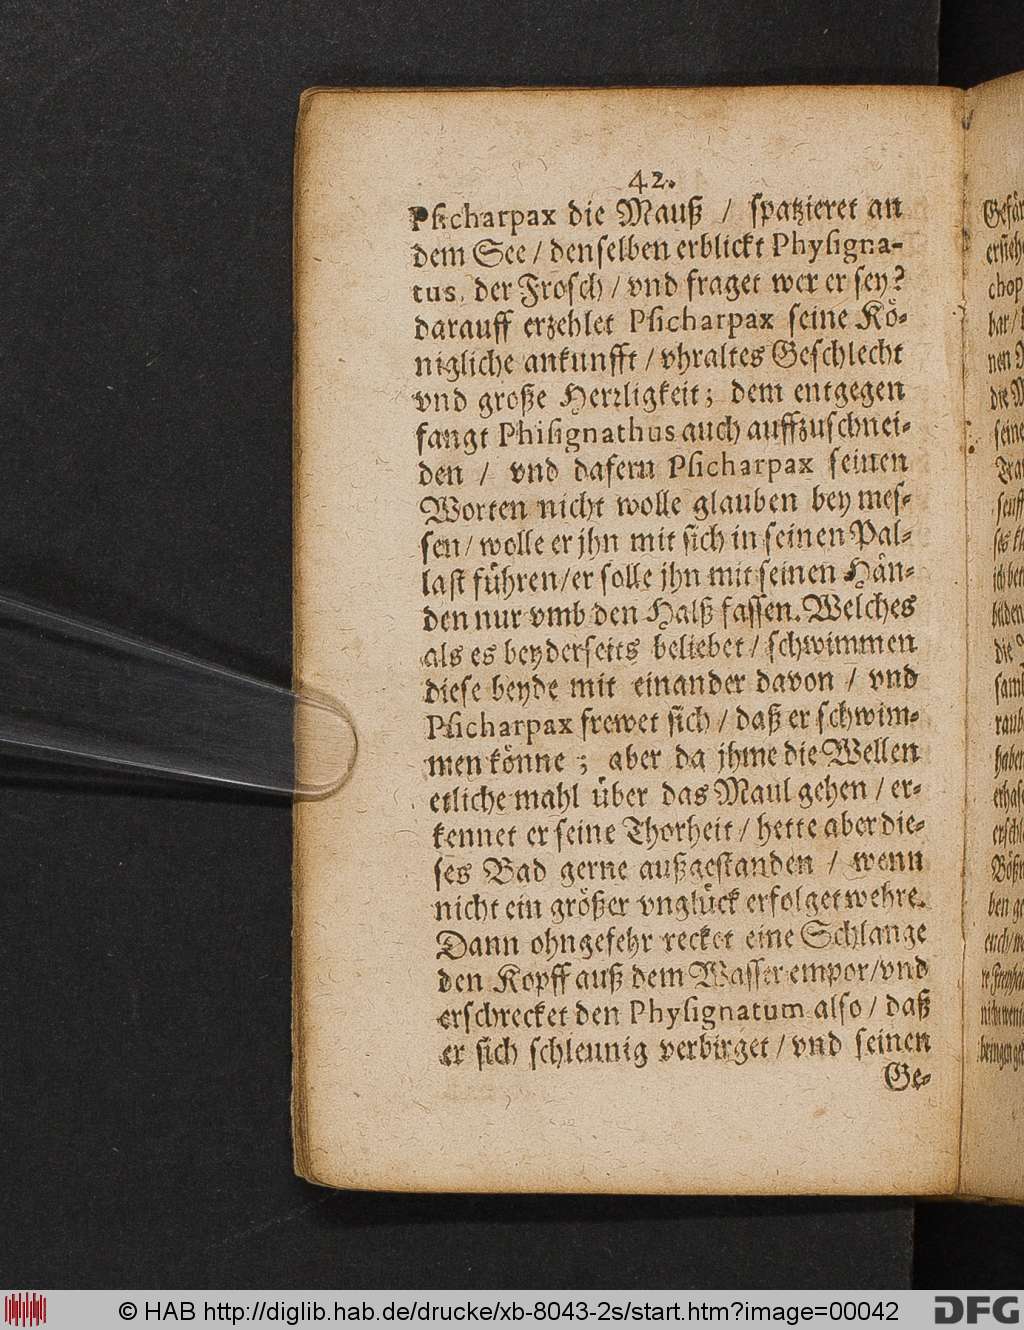 42.
Psicharpax die Mauß / spatzieret an
dem See / denselben erblickt Physigna-
tus, der Frosch / vnd fraget wer er sey?
darauff erzehlet Psicharpax seine Kö-
nigliche ankunfft / vhraltes Geschlecht
vnd große Herꝛligkeit; dem entgegen
fangt Phisignathus auch auffzuschnei-
den / vnd dafern Psicharpax seinen
Worten nicht wolle glauben bey mes-
sen / wolle er jhn mit sich in seinen Pal-
last führen / er solle jhn mit seinen Hän-
den nur vmb den Halß fassen. Welches
als es beyderseits beliebet / schwimmen
diese beyde mit einander davon / vnd
Psicharpax frewet sich / daß er schwim-
men könne; aber da jhme die Wellen
etliche mahl über das Maul gehen / er-
kennet er seine Thorheit / hette aber die-
ses Bad gerne außgestanden / wenn
nicht ein größer vnglück erfolget wehre.
Dann ohngefehr recket eine Schlange
den Kopff auß dem Wasser empor / vnd
erschrecket den Physignatum also / daß
er sich schleunig verbirget / vnd seinen
Ge-
© HAB http://diglib.hab.de/drucke/xb-8043-2s/start.htm?image=00042
DFG